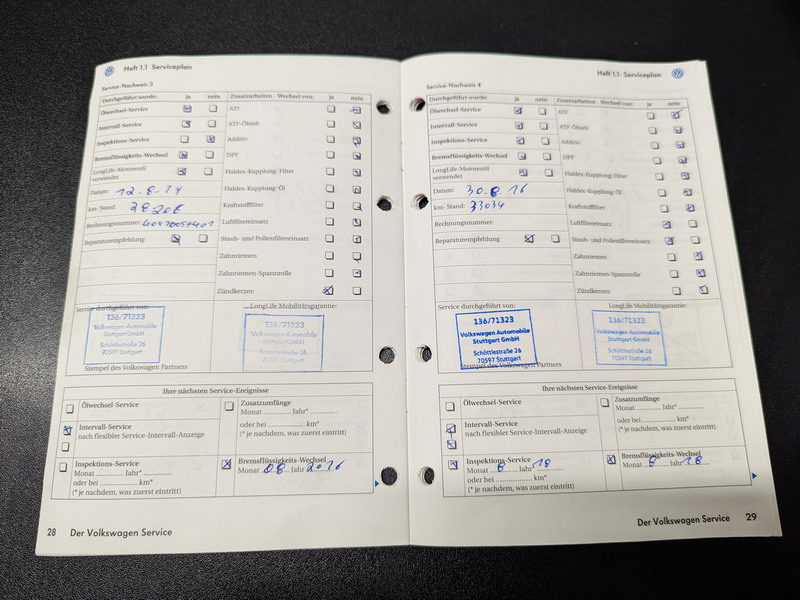 Heft 1.1 Serviceplan
Service-Nachweis 3
Durchgeführt wurde: ja nein Zusatzarbeiten - Wechsel von: ja nein
Ölwechsel-Service ATF
Intervall-Service ATF-Ölsieb
Inspektions-Service Additiv
Bremsflüssigkeits-Wechsel DPF
LongLife-Motorenöl verwendet Haldex-Kupplung: Filter
Datum: 12.8.14 Haldex-Kupplung: Öl
km-Stand: Kraftstofffilter
Rechnungsnummer: Luftfiltereinsatz
Reparaturempfehlung Staub- und Pollenfiltereinsatz
Zahnriemen
Zahnriemen-Spannrolle
Zündkerzen
Service durchgeführt von: LongLife Mobilitätsgarantie:
136/71323 136/71323
Volkswagen Automobile Volkswagen Automobile
Stuttgart GmbH Stuttgart GmbH
Schöttlestraße 26 Schöttlestraße 26
70597 Stuttgart 70597 Stuttgart
Stempel des Volkswagen Partners
Ihre nächsten Service-Ereignisse
Ölwechsel-Service Zusatzumfänge
Monat ............ Jahr* ............
Intervall-Service oder bei ............ km*
nach flexibler Service-Intervall-Anzeige (* je nachdem, was zuerst eintritt)
Inspektions-Service Bremsflüssigkeits-Wechsel
Monat ............ Jahr* ............ Monat 08 Jahr 2016
oder bei ............ km*
(* je nachdem, was zuerst eintritt)
28 Der Volkswagen Service
Heft 1.1 Serviceplan
Service-Nachweis 4
Durchgeführt wurde: ja nein Zusatzarbeiten - Wechsel von: ja nein
Ölwechsel-Service ATF
Intervall-Service ATF-Ölsieb
Inspektions-Service Additiv
Bremsflüssigkeits-Wechsel DPF
LongLife-Motorenöl verwendet Haldex-Kupplung: Filter
Datum: 30.8.16 Haldex-Kupplung: Öl
km-Stand: 33034 Kraftstofffilter
Rechnungsnummer: Luftfiltereinsatz
Reparaturempfehlung Staub- und Pollenfiltereinsatz
Zahnriemen
Zahnriemen-Spannrolle
Zündkerzen
Service durchgeführt von: LongLife Mobilitätsgarantie:
136/71323 136/71323
Volkswagen Automobile Volkswagen Automobile
Stuttgart GmbH Stuttgart GmbH
Schöttlestraße 26 Schöttlestraße 26
70597 Stuttgart 70597 Stuttgart
Stempel des Volkswagen Partners
Ihre nächsten Service-Ereignisse
Ölwechsel-Service Zusatzumfänge
Monat ............ Jahr* ............
Intervall-Service oder bei ............ km*
nach flexibler Service-Intervall-Anzeige (* je nachdem, was zuerst eintritt)
Inspektions-Service Bremsflüssigkeits-Wechsel
Monat 8 Jahr* 18 Monat 8 Jahr 18
oder bei ............ km*
(* je nachdem, was zuerst eintritt)
Der Volkswagen Service 29